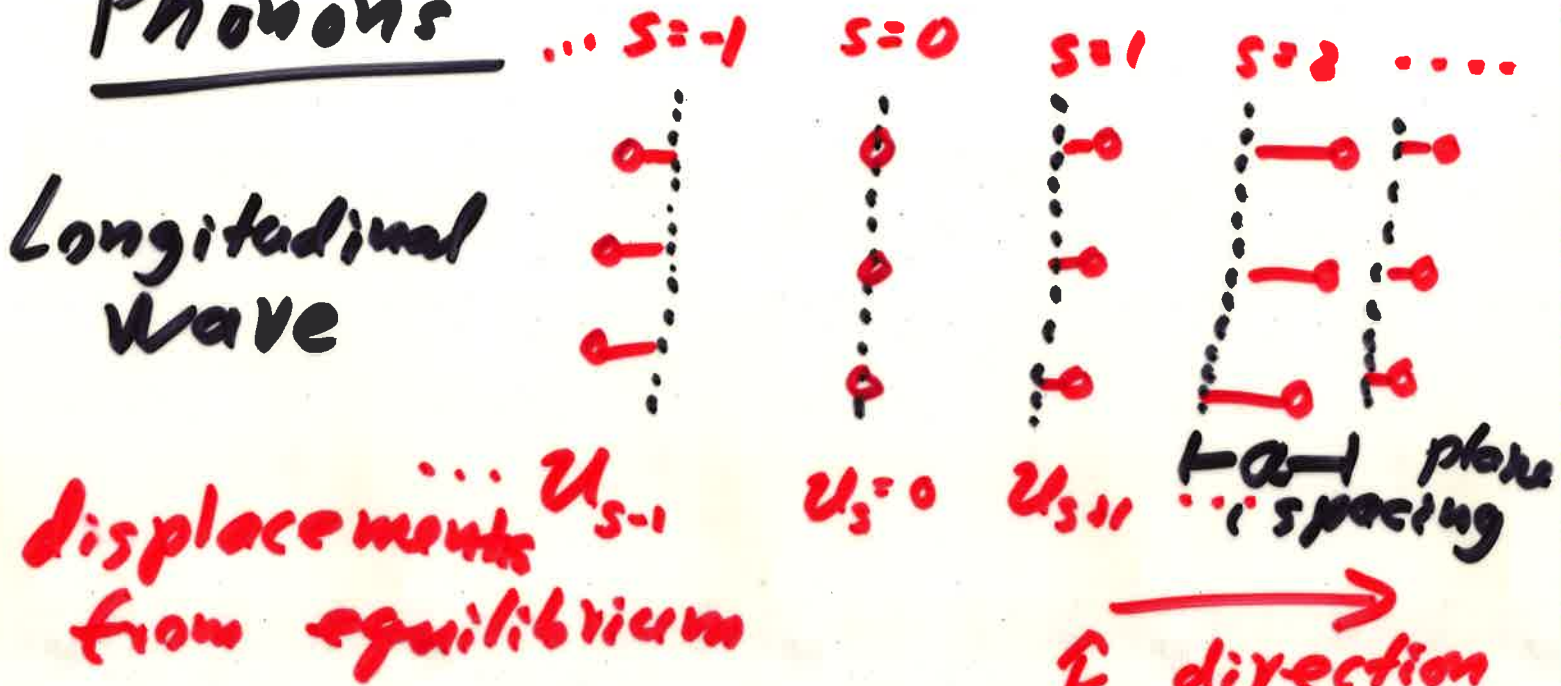 Phonons
... s=-1 s=0 s=1 s=2 ....
Longitudinal
wave
... u_{s-1} u_s=0 u_{s+1} ... ⊢a⊣ plane
spacing
displacements
from equilibrium
direction